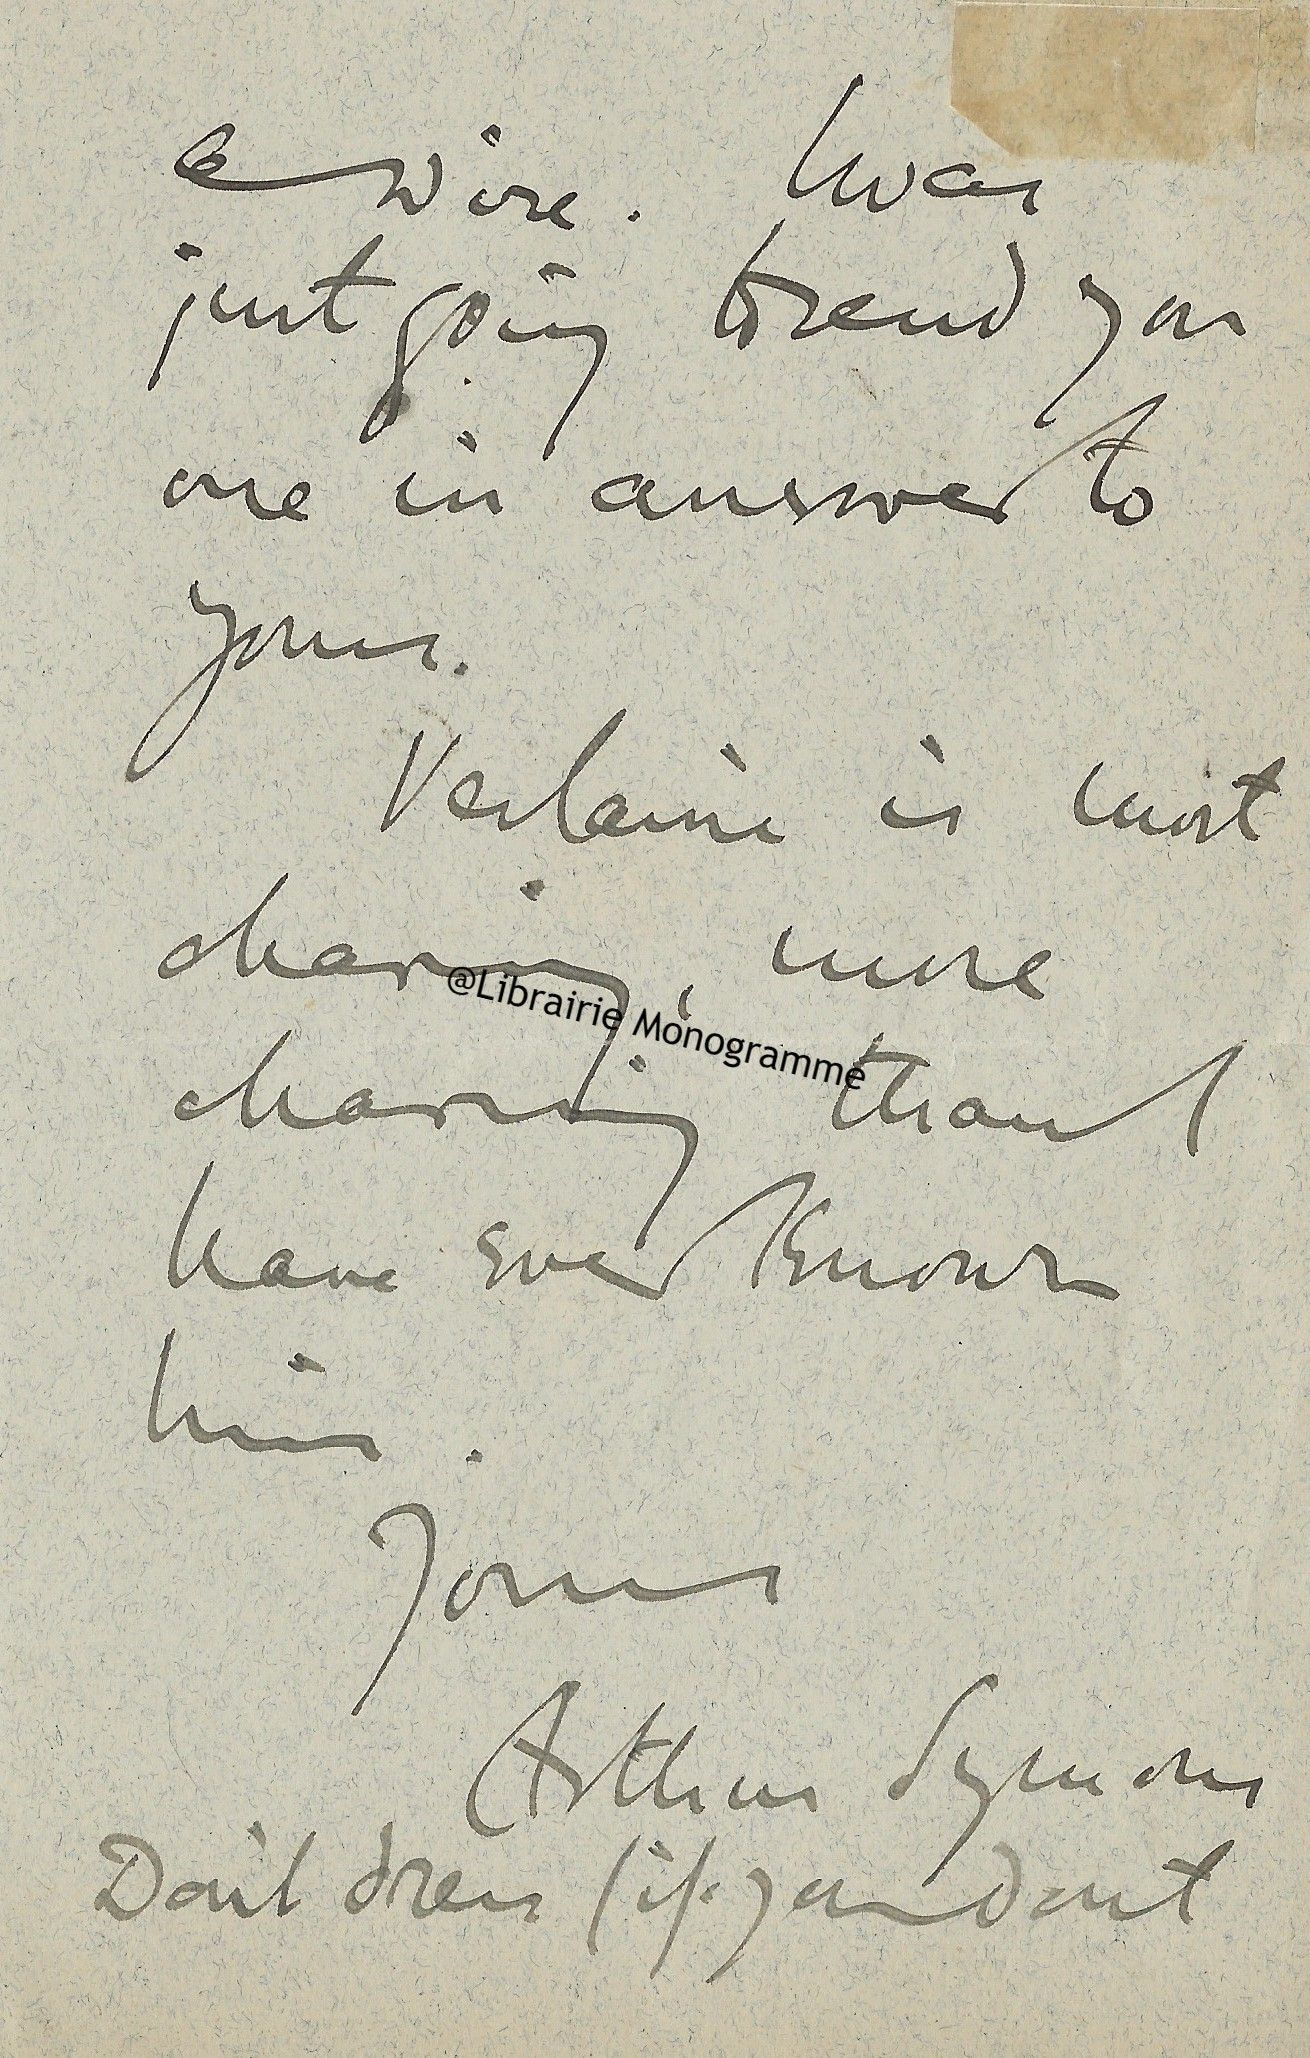 a wire. I was
just going to send you
one in answer to
yours.
Verlaine is most
charming, more
@Librairie Monogramme
charming than I
have ever known
him.
Yours
Arthur Symons
Don't dress (if you don't